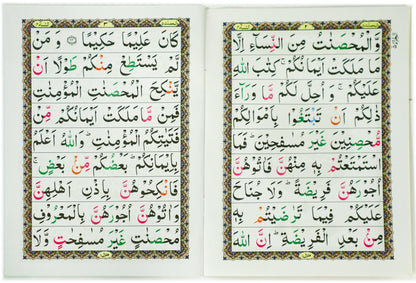 وَّالْمُحْصَنٰتُ مِنَ النِّسَآءِ اِلَّا
مَا مَلَكَتْ اَيْمَانُكُمْ ۚ كِتٰبَ اللّٰهِ
عَلَيْكُمْ ۚ وَاُحِلَّ لَكُمْ مَّا وَرَآءَ
ذٰلِكُمْ اَنْ تَبْتَغُوْا بِاَمْوَالِكُمْ
مُّحْصِنِيْنَ غَيْرَ مُسٰفِحِيْنَ ؕ فَمَا
اسْتَمْتَعْتُمْ بِهٖ مِنْهُنَّ فَاٰتُوْهُنَّ
اُجُوْرَهُنَّ فَرِيْضَةً ؕ وَلَا جُنَاحَ
عَلَيْكُمْ فِيْمَا تَرٰضَيْتُمْ بِهٖ
مِنْۢ بَعْدِ الْفَرِيْضَةِ ؕ اِنَّ اللّٰهَ
كَانَ عَلِيْمًا حَكِيْمًا وَمَنْ
لَّمْ يَسْتَطِعْ مِنْكُمْ طَوْلًا اَنْ
يَّنْكِحَ الْمُحْصَنٰتِ الْمُؤْمِنٰتِ
فَمِنْ مَّا مَلَكَتْ اَيْمَانُكُمْ مِّنْ
فَتَيٰتِكُمُ الْمُؤْمِنٰتِ ؕ وَاللّٰهُ اَعْلَمُ
بِاِيْمَانِكُمْ ؕ بَعْضُكُمْ مِّنْۢ بَعْضٍ ۚ
فَانْكِحُوْهُنَّ بِاِذْنِ اَهْلِهِنَّ
وَاٰتُوْهُنَّ اُجُوْرَهُنَّ بِالْمَعْرُوْفِ
مُحْصَنٰتٍ غَيْرَ مُسٰفِحٰتٍ وَّلَا